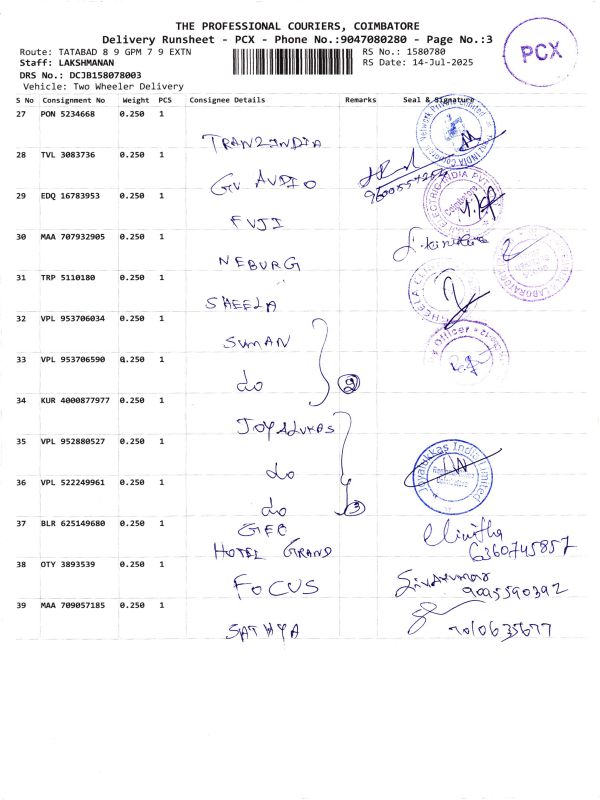 THE PROFESSIONAL COURIERS, COIMBATORE
Delivery Runsheet - PCX - Phone No.:9047080280 - Page No.:3
Route: TATABAD 8 9 GPM 7 9 EXTN RS No.: 1580780
Staff: LAKSHMANAN RS Date: 14-Jul-2025
PCX
DRS No.: DCJB158078003
Vehicle: Two Wheeler Delivery
S No Consignment No Weight PCS Consignee Details Remarks Seal & Signature
27 PON 5234668 0.250 1
TRANZINDIA
28 TVL 3083736 0.250 1
GV AUDIO
29 EDQ 16783953 0.250 1
FUJI
30 MAA 707932905 0.250 1
NEBURG
31 TRP 5110180 0.250 1
SHEELA
32 VPL 953706034 0.250 1
SUMAN
33 VPL 953706590 0.250 1
do 2
34 KUR 4000877977 0.250 1
JOYALUKAS
35 VPL 952880527 0.250 1
do
Joyalukkas India Limited
36 VPL 522249961 0.250 1
do 3
37 BLR 625149680 0.250 1
GEE
HOTEL GRAND
6360745857
38 OTY 3893539 0.250 1
FOCUS
Sivakumar
9095590392
39 MAA 709057185 0.250 1
SATHYA